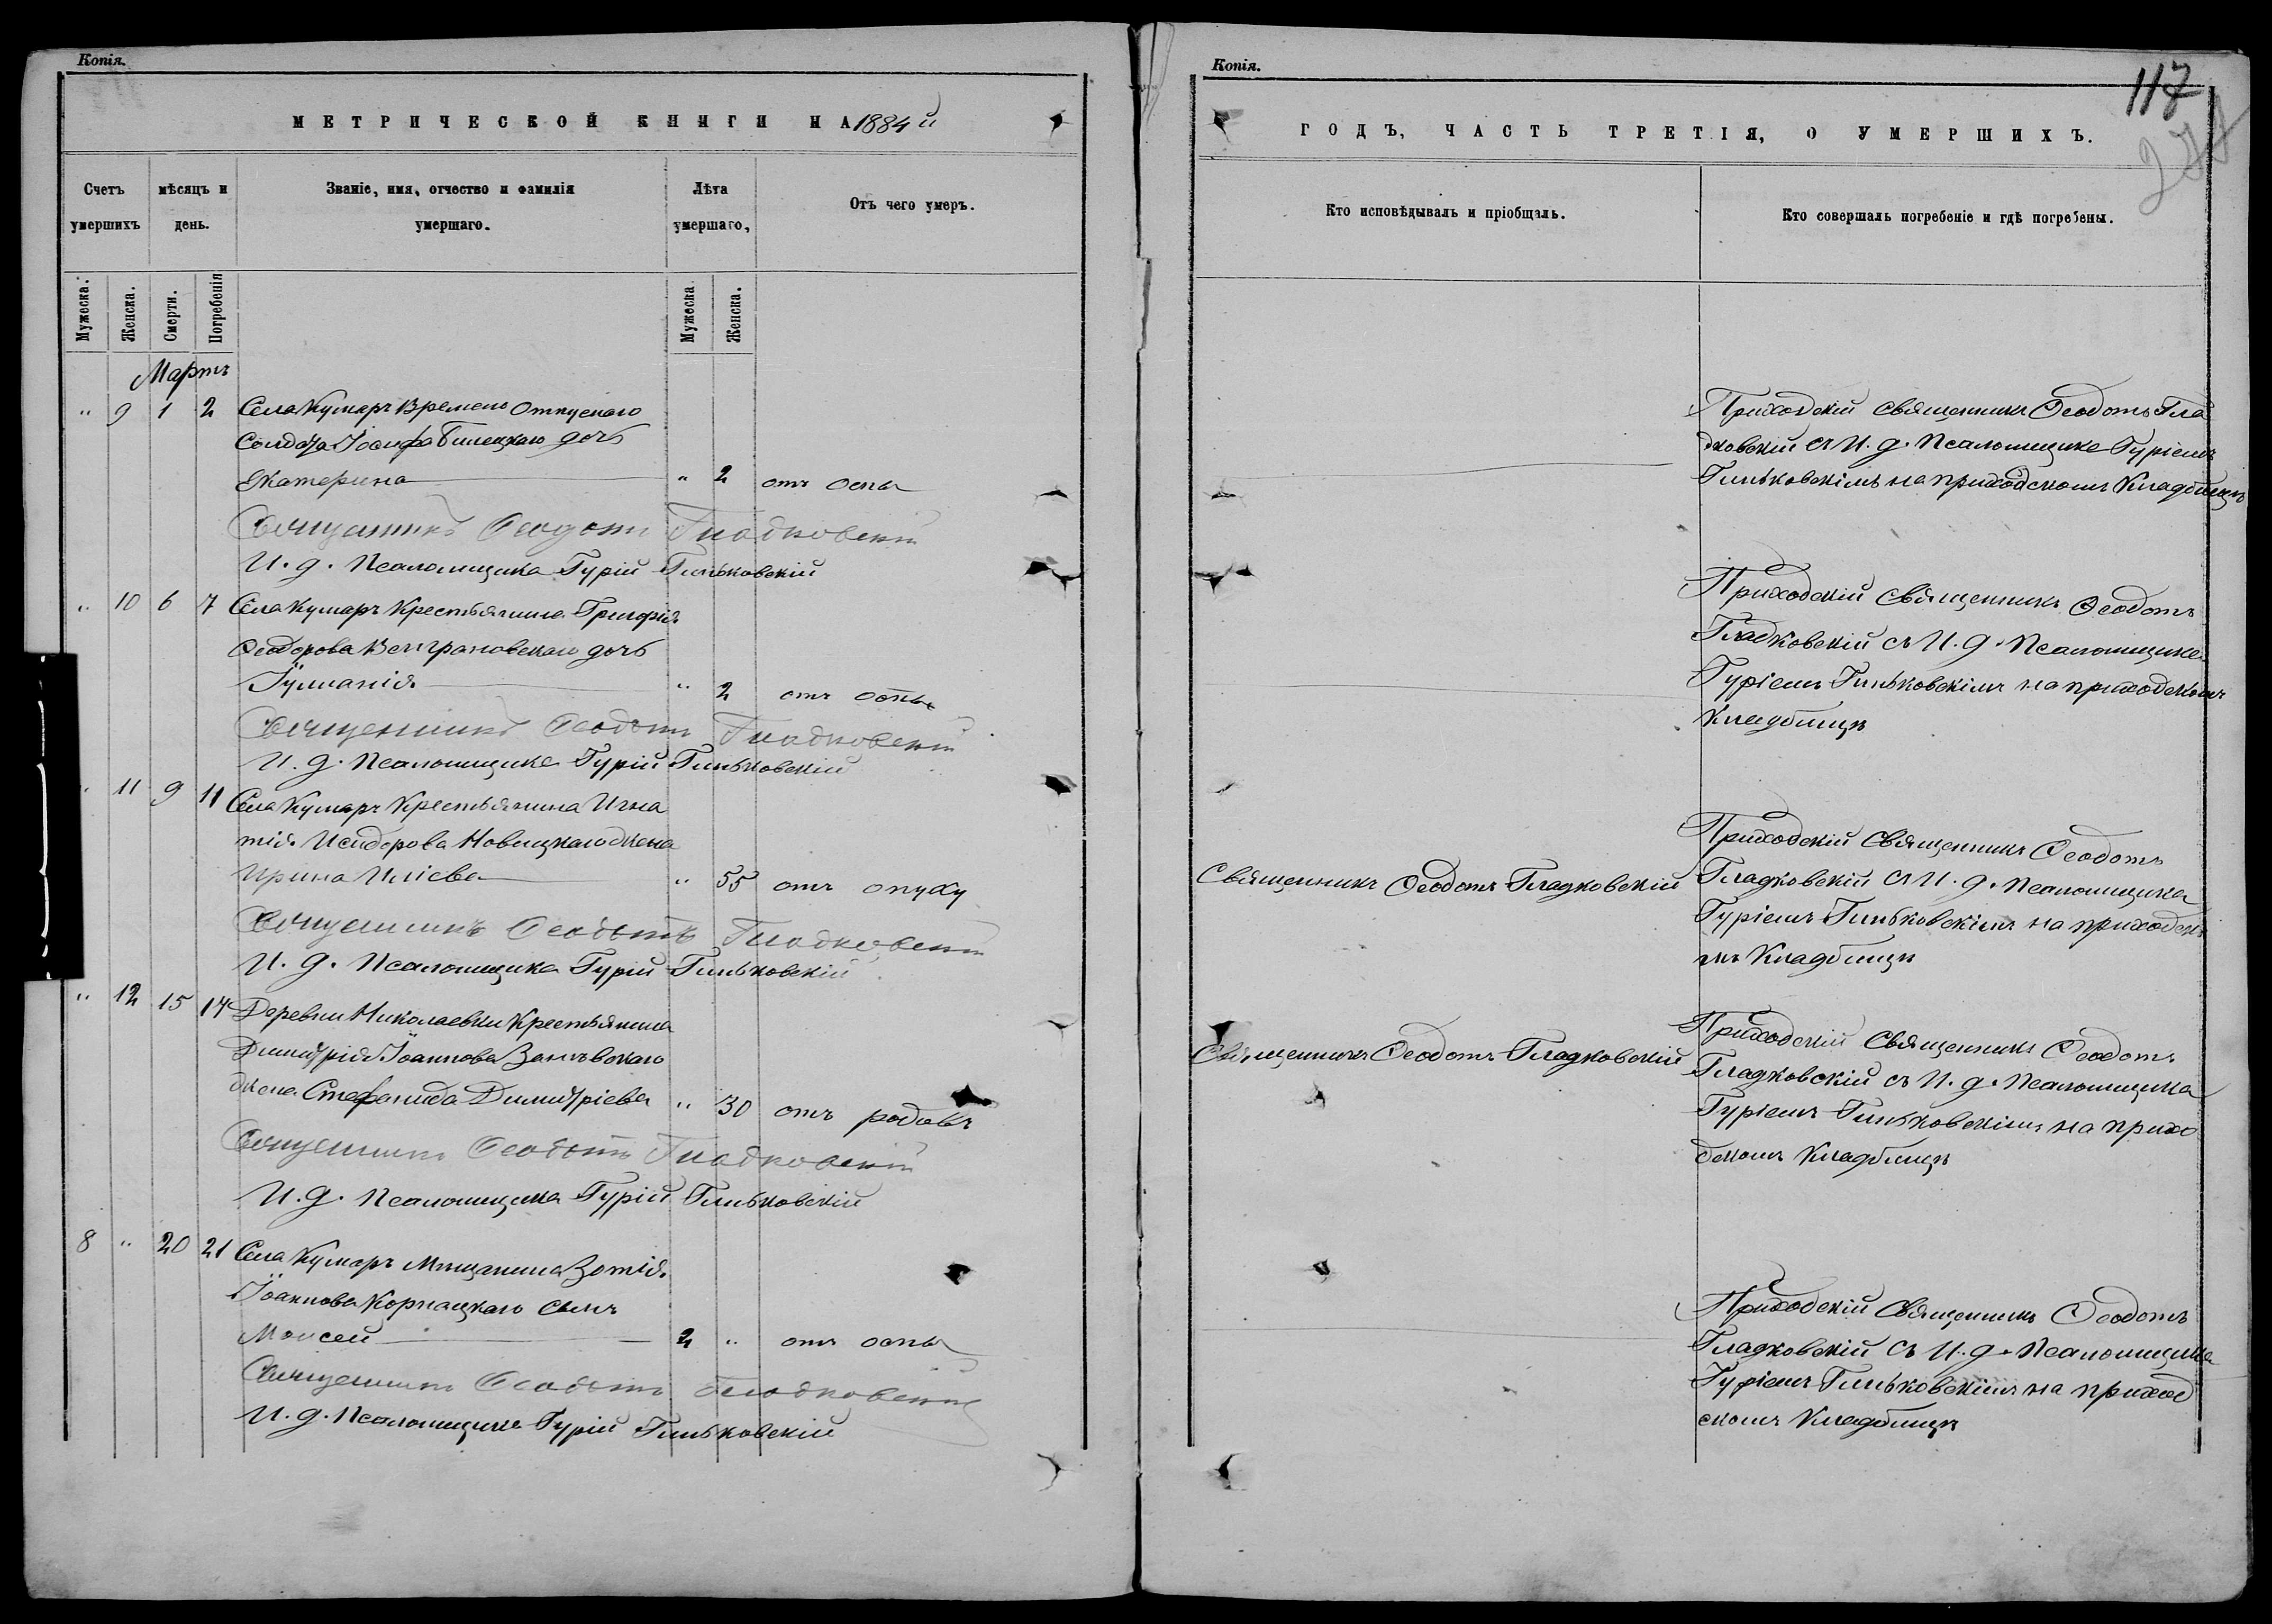 Копія.
МЕТРИЧЕСКОЙ КНИГИ НА 1884 й
Счетъ умершихъ
мѣсяцъ и день.
Званіе, имя, отчество и фамилія умершаго.
Лѣта умершаго,
Отъ чего умеръ.
Мужеска.
Женска.
Смерти.
Погребенія
Мужеска
Женска.
Мартъ
" 9 1 2 Села Кумаръ Времено отпускнаго
Солдата Іосифа Билецкаго дочь
Екатерина " 2 отъ оспы
Священникъ Ѳеодотъ Гладковскій
И. д. Псаломщика Гурій Гиньковскій
" 10 6 7 Села Кумаръ Крестьянина Григорія
Ѳеодорова Венграновскаго дочь
Іуліанія " 2 отъ оспы
Священникъ Ѳеодотъ Гладковскій
И. д. Псаломщика Гурій Гиньковскій
" 11 9 11 Села Кумаръ Крестьянина Игна
тія Исидорова Новицкаго жена
Ирина Иліева " 55 отъ опуху
Священникъ Ѳеодотъ Гладковскій
И. д. Псаломщика Гурій Гиньковскій
" 12 15 17 Деревни Николаевки Крестьянина
Димитрія Іоаннова
жена Стефанида Димитріева " 30 отъ родовъ
Священникъ Ѳеодотъ Гладковскій
И. д. Псаломщика Гурій Гиньковскій
8 " 20 21 Села Кумаръ Мѣщанина Зотія
Іоаннова Корнацкаго сынъ
Моисей 2 " отъ оспы
Священникъ Ѳеодотъ Гладковскій
И. д. Псаломщика Гурій Гиньковскій
Копія.
117
ГОДЪ, ЧАСТЬ ТРЕТІЯ, О УМЕРШИХЪ.
Кто исповѣдывалъ и пріобщалъ.
Кто совершалъ погребеніе и гдѣ погребены.
Приходскій священникъ Ѳеодотъ Гла
дковскій съ И. д. Псаломщика Гуріемъ
Гиньковскимъ на приходскомъ Кладбищѣ
Приходскій Священникъ Ѳеодотъ
Гладковскій съ И. д. Псаломщика
Гуріемъ Гиньковскімъ на приходскомъ
Кладбищѣ
Приходскій Священникъ Ѳеодотъ
Священникъ Ѳеодотъ Гладковскій Гладковскій съ И. д. Псаломщика
Гуріемъ Гиньковскімъ на приходско
мъ Кладбищѣ
Приходскій Священникъ Ѳеодотъ
Священникъ Ѳеодотъ Гладковскій Гладковскій съ И. д. Псаломщика
Гуріемъ Гиньковскімъ на прихо
дскомъ Кладбищѣ
Приходскій Священникъ Ѳеодотъ
Гладковскій съ И. д. Псаломщика
Гуріемъ Гиньковскімъ на приход
скомъ Кладбищѣ